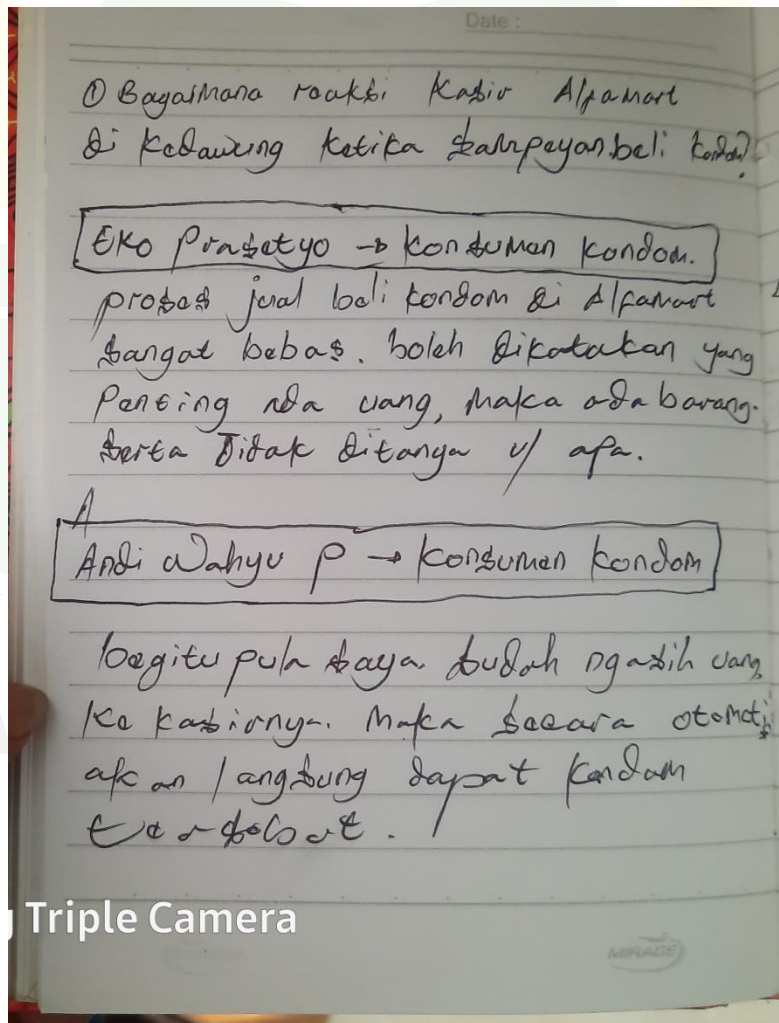 Date :
① Bagaimana reaksi Kasir Alfamart
di Kedawung ketika sampeyan beli kondom?
Eko Prasetyo → konsumen kondom.
proses jual beli kondom di Alfamart
sangat bebas. boleh dikatakan yang
Penting ada uang, maka ada barang.
serta Tidak ditanya u/ apa.
A
Andi Wahyu P → konsumen kondom
begitu pula saya. sudah ngasih uang
ke kasirnya. Maka secara otomatis
akan langsung dapat kondom
tersebut.
Triple Camera
MIRAGE